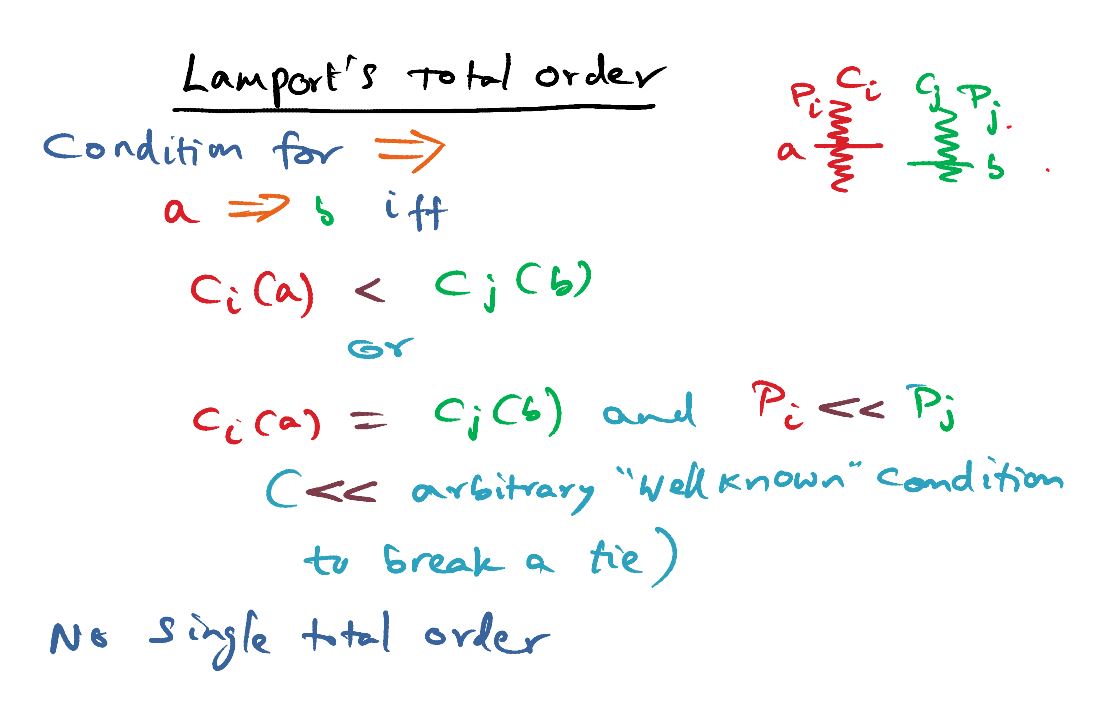 Lamport's total order
Condition for ⇒
a ⇒ b iff
Ci(a) < Cj(b)
or
Ci(a) = Cj(b) and Pi << Pj
(<< arbitrary "well known" condition
to break a tie)
No single total order
Pi Ci Cj Pj
a b